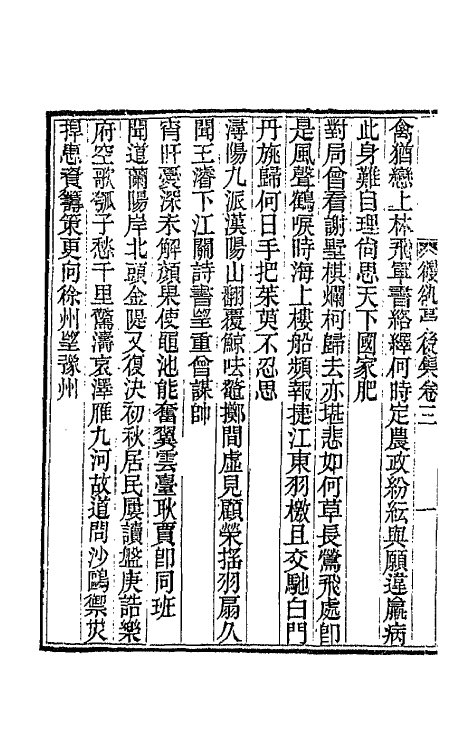 後集卷三
一
禽猶戀上林飛軍書絡繹何時定農政紛紜與願違羸病
此身難自理尙思天下國家肥
對局曾看謝墅棋爛柯歸去亦堪悲如何草長鶯飛處卽
是風聲鶴唳時海上樓船頻報捷江東羽檄且交馳白門
丹旐歸何日手把茱萸不忍思
潯陽九派漢陽山翻覆鯨呿鼇擲間虛見顧榮搖羽扇久
聞王濬下江關詩書望重曾謀帥
宵旰憂深未解顏果使黽池能奮翼雲臺耿賈卽同班
聞道蘭陽岸北頭金隄又復決初秋居民屢讀盤庚誥樂
府空歌瓠子愁千里驚濤哀澤雁九河故道問沙鷗禦災
捍患資籌策更向徐州望豫州